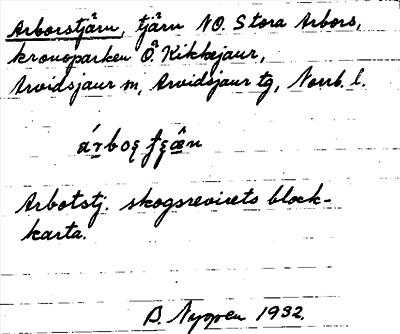 Arborstjärn, tjärn NO. Stora Arbors,
kronoparken Ö. Kikkejaur,
Arvidsjaur m, Arvidsjaur tg, Norrb. l.
Arbotstj. skogsrevirets block-
karta.
B. Nygren 1932.